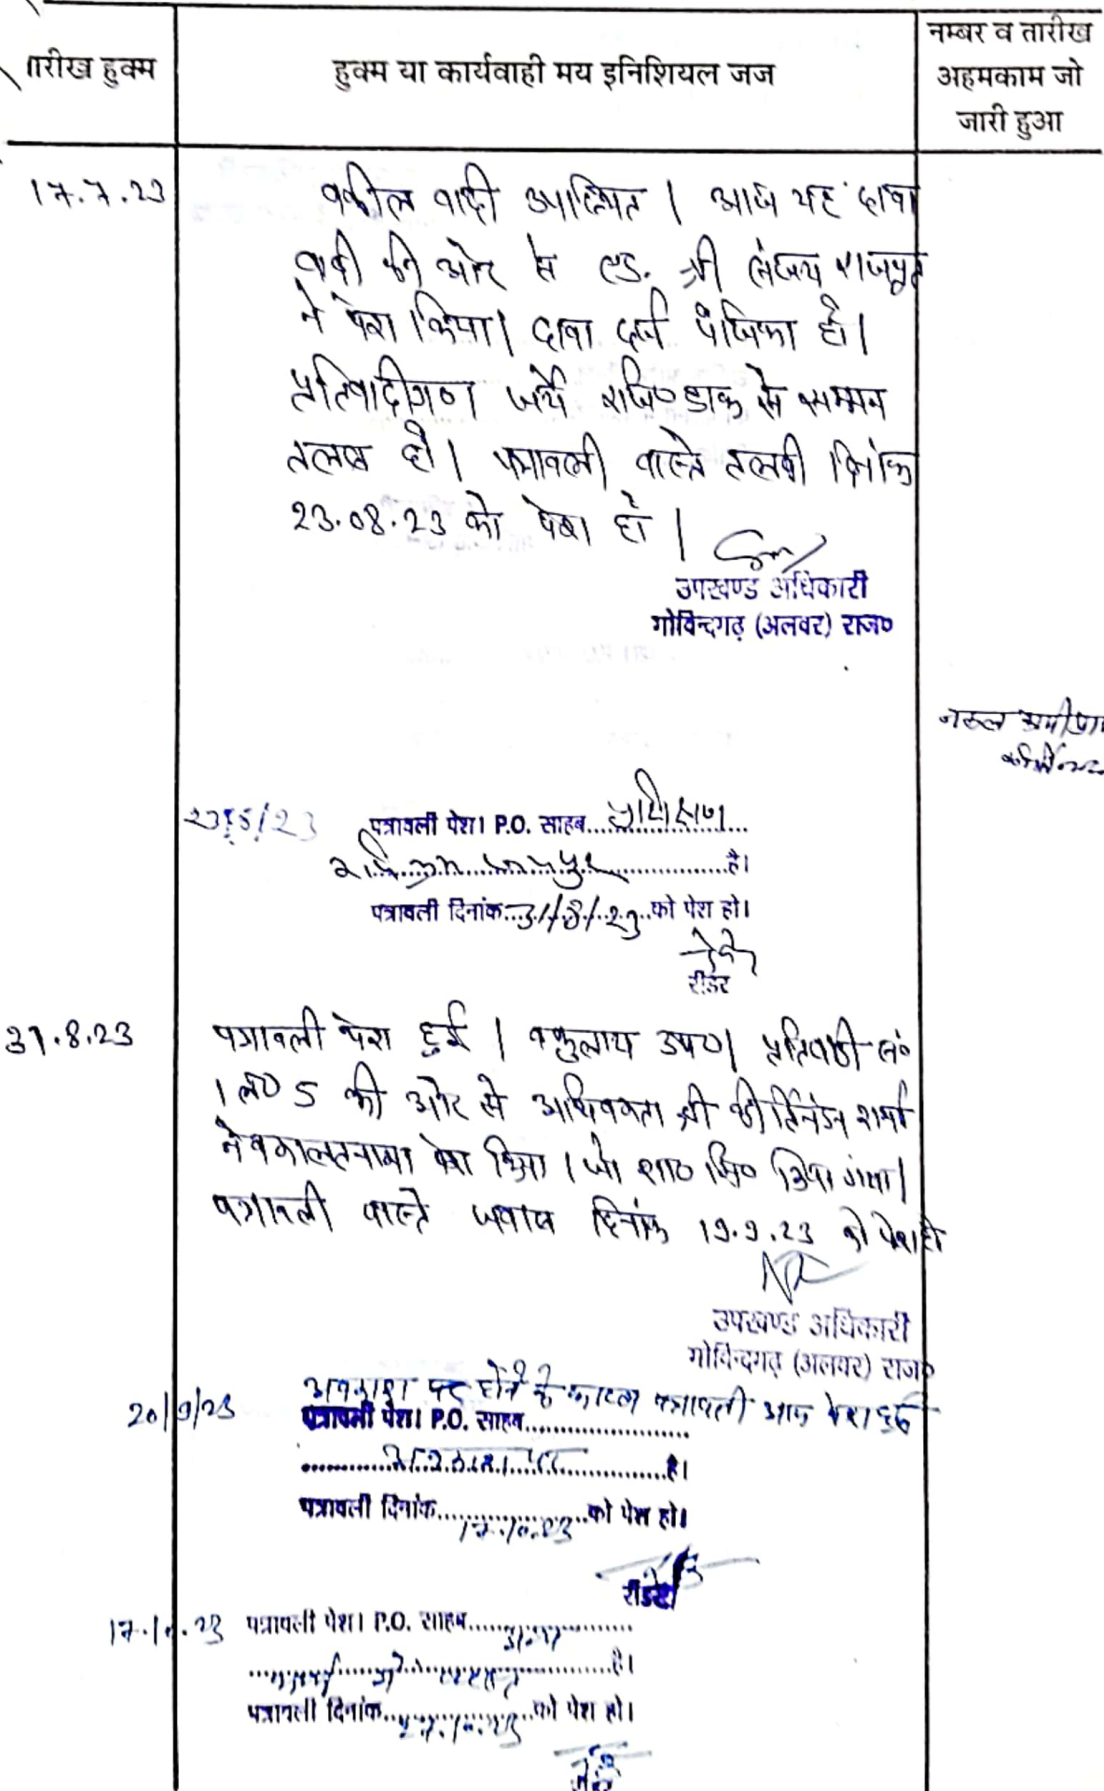 तारीख हुक्म
हुक्म या कार्यवाही मय इनिशियल जज
नम्बर व तारीख
अहमकाम जो
जारी हुआ
17.7.23
वकील वादी उपस्थित । आज यह दावा
वादी की ओर से एड. श्री संजय राजपूत
ने पेश किया। दावा दर्ज पंजिका हो।
प्रतिवादीगण जर्ये रजि० डाक से सम्मन
तलब हो। पत्रावली वास्ते तलबी दिनांक
23.08.23 को पेश हो |
उपखण्ड अधिकारी
गोविन्दगढ़ (अलवर) राज०
नकल
पत्रावली पेश। P.O. साहब प्रशिक्षण
है।
पत्रावली दिनांक 31/8/23 को पेश हो।
रीडर
31.8.23
पत्रावली पेश हुई | वकुलाय उप०| प्रतिवादी सं०
1 ता० 5 की ओर से अधिवक्ता श्री शर्मा
ने वकालतनामा पेश किया । जो शा० मि० किया गया|
पत्रावली वास्ते जवाब दिनांक 19.9.23 को पेश हो
उपखण्ड अधिकारी
गोविन्दगढ़ (अलवर) राज०
20/9/23
अवकाश पर होने के कारण पत्रावली आज पेश हुई
पत्रावली पेश। P.O. साहब
अवकाश पर है।
पत्रावली दिनांक 17.10.23 को पेश हो।
रीडर
17.10.23
पत्रावली पेश। P.O. साहब अन्य
कार्य में व्यस्त है।
पत्रावली दिनांक 27.10.23 को पेश हो।
रीडर